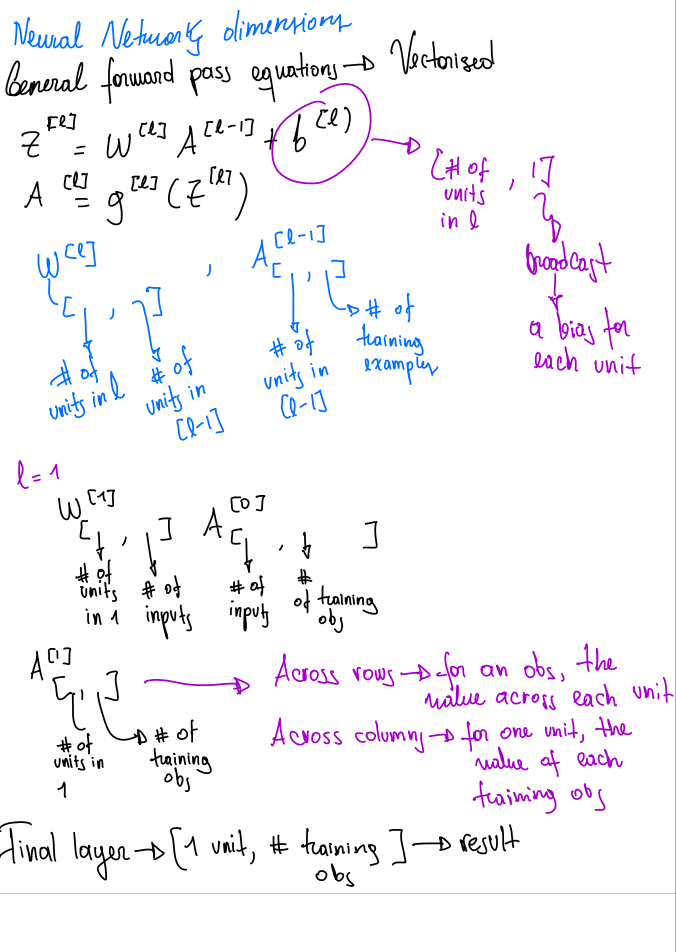 Neural Networks dimensions
General forward pass equations → Vectorised
Z^[l] = W^[l] A^[l-1] + b^[l)
A^[l] = g^[l] (Z^[l])
[# of units in l , 1]
broadcast
a bias for
each unit
W^[l] , A^[l-1]
[ , ] [ , ]
# of units in l
# of units in [l-1]
# of units in [l-1]
# of training examples
l = 1
W^[1] A^[0]
[ , ] [ , ]
# of units in 1
# of inputs
# of inputs
# of training obs
A^[1]
[ , ]
# of units in 1
# of training obs
Across rows → for an obs, the
value across each unit
Across columns → for one unit, the
value of each
training obs
Final layer → [1 unit, # training obs] → result